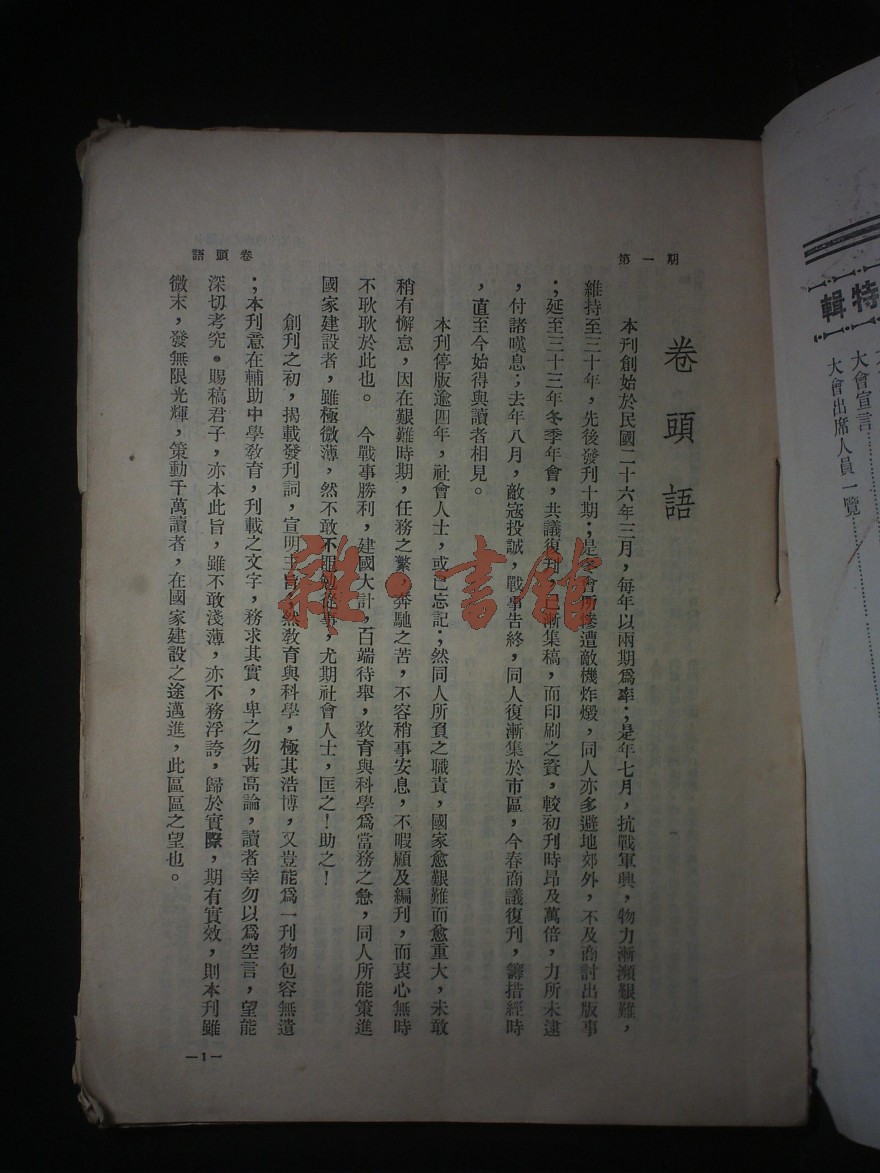 第一期
卷頭語
卷頭語
本刊創始於民國二十六年三月，每年以兩期爲率；是年七月，抗戰軍興，物力漸瀕艱難，
維持至三十年，先後發刊十期；是冬會所慘遭敵機炸燬，同人亦多避地郊外，不及商討出版事
；延至三十三年冬季年會，共議復刊，已漸集稿，而印刷之資，較初刊時昂及萬倍，力所未逮
，付諸嘆息；去年八月，敵寇投誠，戰事告終，同人復漸集於市區，今春商議復刊，籌措經時
，直至今始得與讀者相見。
本刊停版逾四年，社會人士，或已忘記；然同人所負之職責，國家愈艱難而愈重大，未敢
稍有懈怠，因在艱難時期，任務之繁，奔馳之苦，不容稍事安息，不暇顧及編刊，而衷心無時
不耿耿於此也。　今戰事勝利，建國大計，百端待舉，敎育與科學爲當務之急，同人所能策進
國家建設者，雖極微薄，然不敢不黽勉從事，尤期社會人士，匡之！助之！
創刊之初，揭載發刊詞，宣明主旨，然敎育與科學，極其浩博，又豈能爲一刊物包容無遺
；本刊意在輔助中學敎育，刊載之文字，務求其實，卑之勿甚高論，讀者幸勿以爲空言，望能
深切考究。賜稿君子，亦本此旨，雖不敢淺薄，亦不務浮誇，歸於實際，期有實效，則本刊雖
微末，發無限光輝，策動千萬讀者，在國家建設之途邁進，此區區之望也。
—1—
特輯
大會宣言
大會出席人員一覽
雜·書館